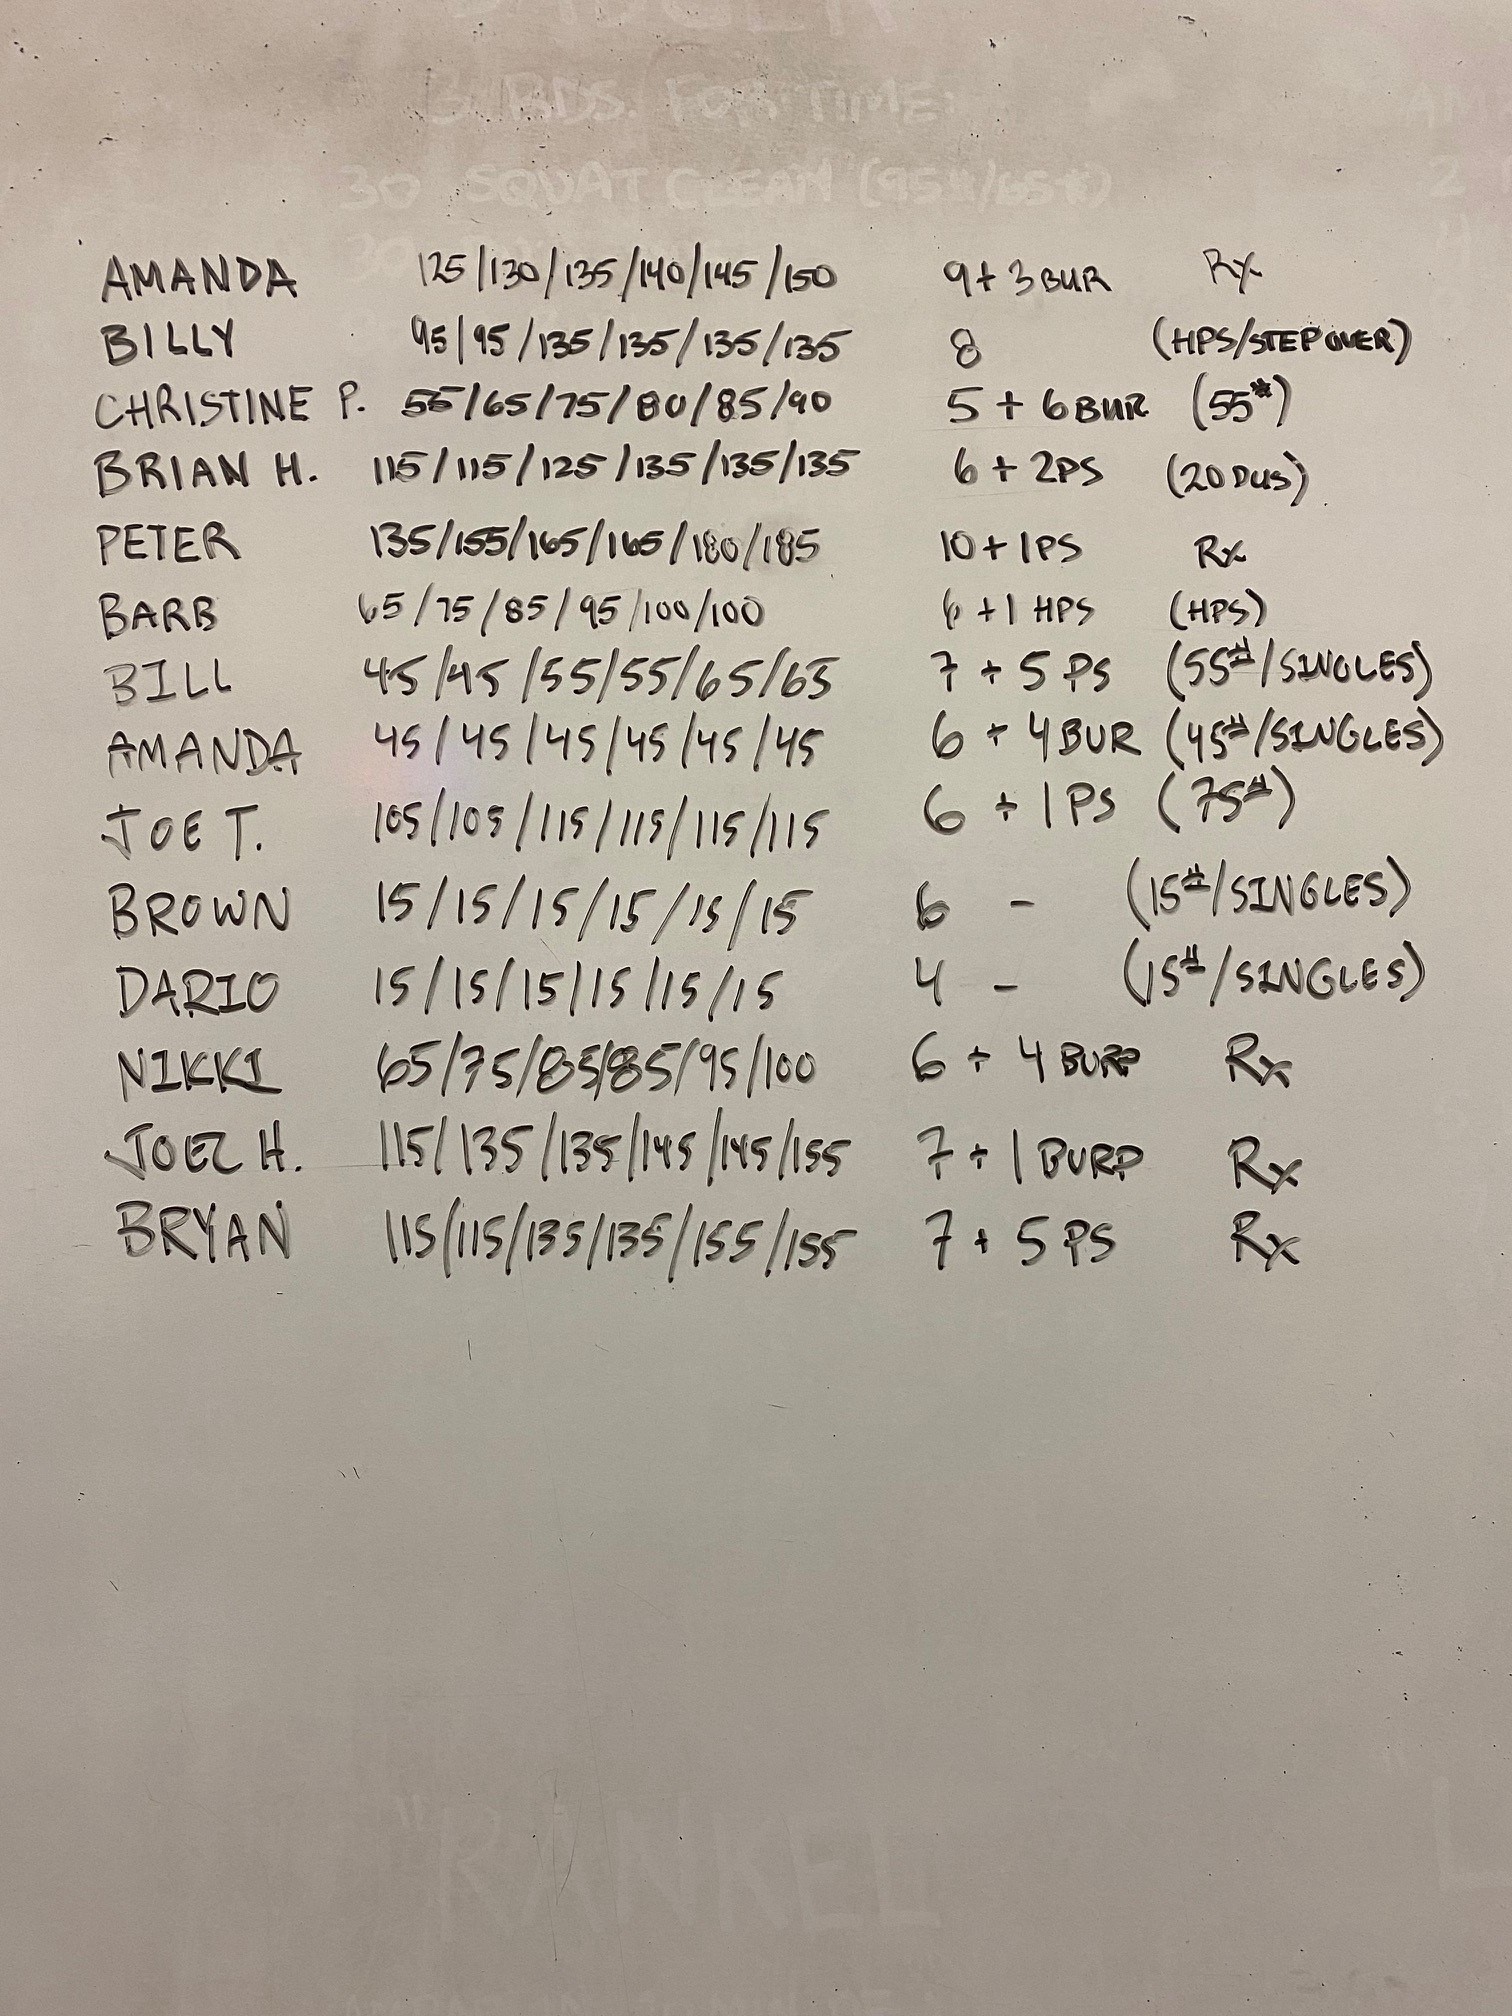 3 RDS. FOR TIME:
30 SQUAT CLEAN (95#/65#)
30
AMANDA 125/130/135/140/145/150 9+3 BUR Rx
BILLY 95/95/135/135/135/135 8 (HPS/STEP OVER)
CHRISTINE P. 55/65/75/80/85/90 5 + 6 BUR (55#)
BRIAN H. 115/115/125/135/135/135 6 + 2PS (20 DUS)
PETER 135/155/165/165/180/185 10+1PS Rx
BARB 65/75/85/95/100/100 6+1 HPS (HPS)
BILL 45/45/55/55/65/65 7 + 5 PS (55#/SINGLES)
AMANDA 45/45/45/45/45/45 6 + 4 BUR (45#/SINGLES)
JOE T. 105/105/115/115/115/115 6 + 1 PS (75#)
BROWN 15/15/15/15/15/15 6 - (15#/SINGLES)
DARIO 15/15/15/15/15/15 4 - (15#/SINGLES)
NIKKI 65/75/85/85/95/100 6 + 4 BURP Rx
JOEL H. 115/135/135/145/145/155 7 + 1 BURP Rx
BRYAN 115/115/135/135/155/155 7 + 5 PS Rx
"RANKEL